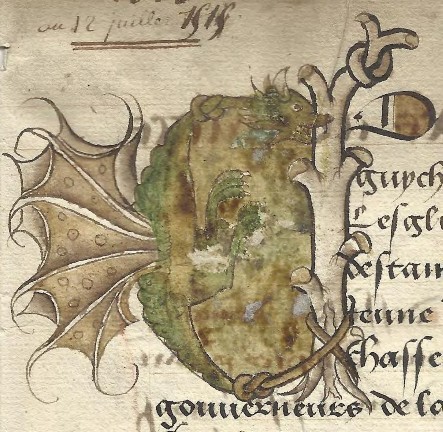 au 12 juillet 1515
guych
Lesgli
destau
tenne
Chasse
gouuerneurs de la